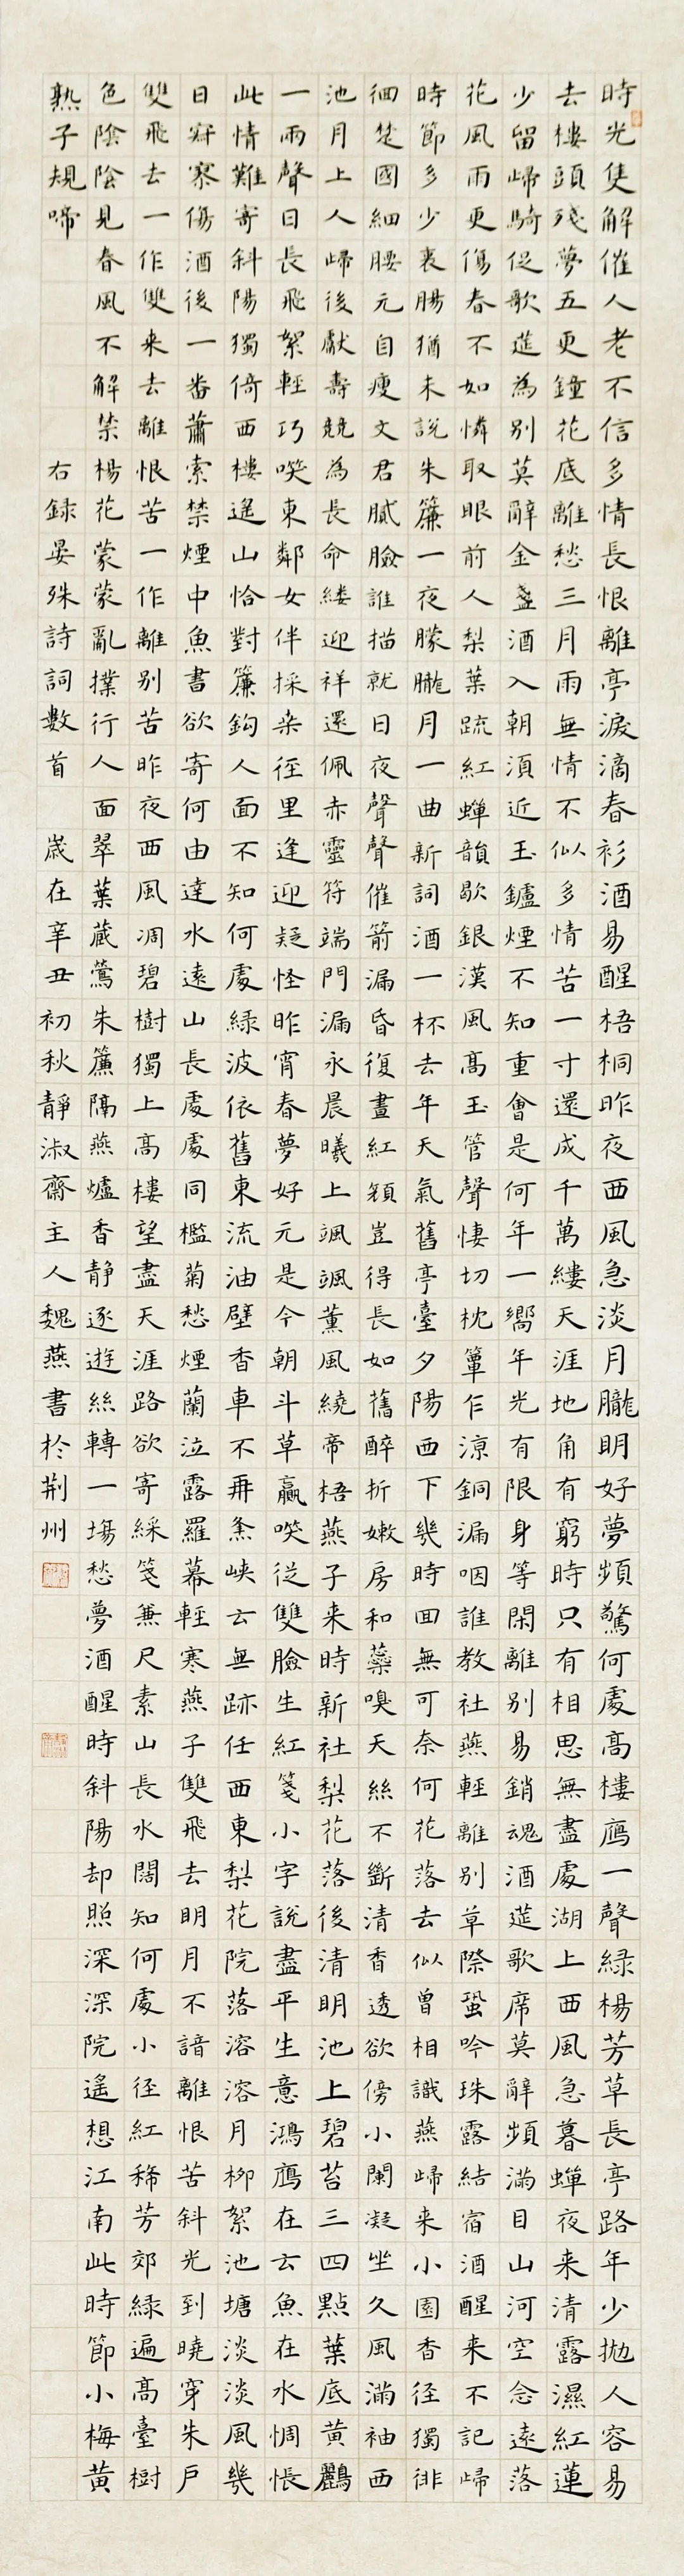 時光隻解催人老不信多情長恨離亭淚滴春衫酒易醒梧桐昨夜西風急淡月朧明好夢頻驚何處高樓鴈一聲綠楊芳草長亭路年少拋人容易
去樓頭殘夢五更鐘花底離愁三月雨無情不似多情苦一寸還成千萬縷天涯地角有窮時只有相思無盡處湖上西風急暮蟬夜来清露濕紅蓮
少留歸騎促歌筵為別莫辭金盞酒入朝須近玉鑪煙不知重會是何年一嚮年光有限身等閑離別易銷魂酒筵歌席莫辭頻滿目山河空念遠落
花風雨更傷春不如憐取眼前人梨葉疏紅蟬韻歇銀漢風高玉管聲悽切枕簟乍涼銅漏咽誰教社燕輕離別草際蛩吟珠露結宿酒醒来不記歸
時節多少衷腸猶未說朱簾一夜朦朧月一曲新詞酒一杯去年天氣舊亭臺夕陽西下幾時回無可奈何花落去似曾相識燕歸来小園香徑獨徘
徊楚國細腰元自瘦文君膩臉誰描就日夜聲聲催箭漏昏復晝紅顏豈得長如舊醉折嫩房和蘂嗅天絲不斷清香透欲傍小闌凝坐久風滿袖西
池月上人歸後獻壽競為長命縷迎祥還佩赤靈符端門漏永晨曦上颯颯薰風繞帝梧燕子来時新社梨花落後清明池上碧苔三四點葉底黃鸝
一兩聲日長飛絮輕巧咲東鄰女伴採桒徑里逢迎疑怪昨宵春夢好元是今朝斗草贏咲從雙臉生紅箋小字說盡平生意鴻鴈在雲魚在水惆悵
此情難寄斜陽獨倚西樓遙山恰對簾鈎人面不知何處綠波依舊東流油壁香車不再逢峽雲無跡任西東梨花院落溶溶月柳絮池塘淡淡風幾
日寂寥傷酒後一番蕭索禁煙中魚書欲寄何由達水遠山長處處同檻菊愁煙蘭泣露羅幕輕寒燕子雙飛去明月不諳離恨苦斜光到曉穿朱戶
雙飛去一作雙来去離恨苦一作離別苦昨夜西風凋碧樹獨上高樓望盡天涯路欲寄綵箋兼尺素山長水闊知何處小徑紅稀芳郊綠遍高臺樹
色陰陰見春風不解禁楊花蒙蒙亂撲行人面翠葉藏鶯朱簾隔燕爐香靜逐遊絲轉一場愁夢酒醒時斜陽却照深深院遙想江南此時節小梅黃
熟子規啼 右録晏殊詩詞數首 歲在辛丑初秋靜淑齋主人魏燕書於荆州